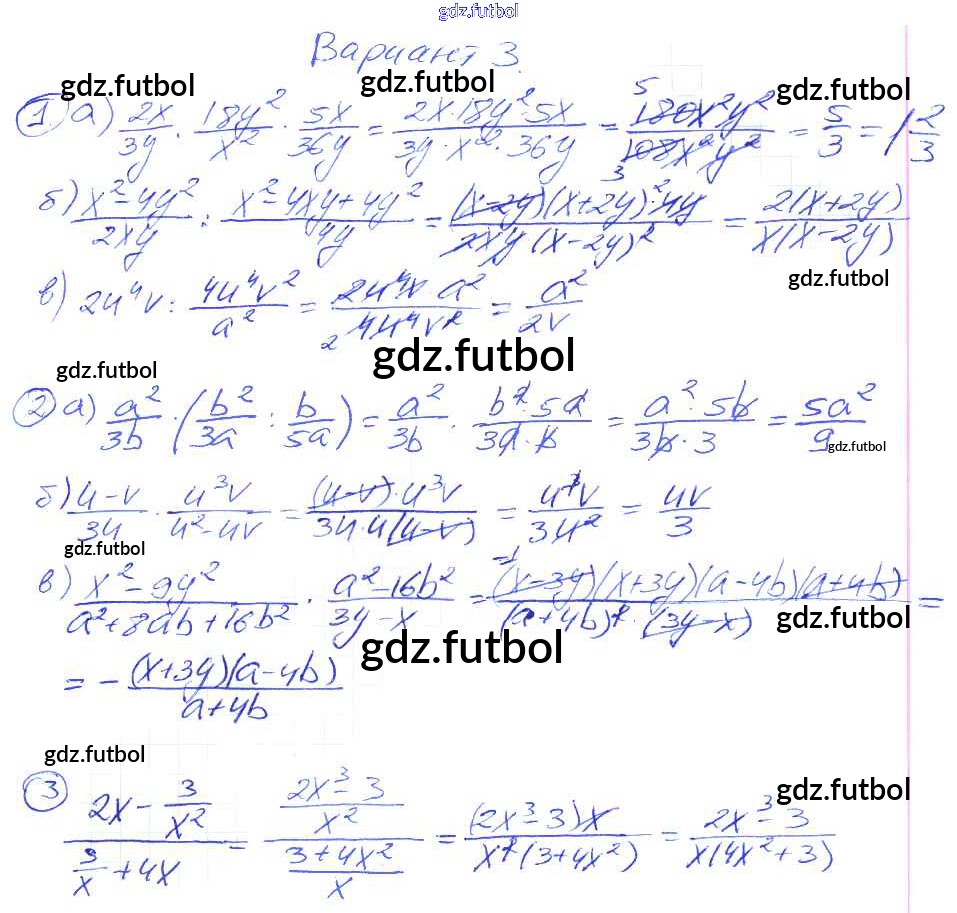 gdz.futbol
Вариант 3.
gdz.futbol gdz.futbol gdz.futbol
① а) 2x/3y · 18y²/x² · 5x/36y = 2x·18y²·5x/3y·x²·36y = 5 180x²y²/108x²y² 3 = 5/3 = 1 2/3
б) x²-4y²/2xy : x²-4xy+4y²/4y = (x-2y)(x+2y)·²4y/2xy(x-2y)² = 2(x+2y)/x(x-2y)
gdz.futbol
в) 2u⁴v : 4u⁴v²/a² = 2u⁴v a²/2 4u⁴v² = a²/2v
gdz.futbol gdz.futbol
② а) a²/3b · (b²/3a : b/5a) = a²/3b · b²·5a/3a·b = a²·5b/3b·3 = 5a²/9
gdz.futbol
б) u-v/3u · u³v/u²-uv = (u-v)·u³v/3u·u(u-v) = u³v/3u² = uv/3
gdz.futbol
в) x²-9y²/a²+8ab+16b² · a²-16b²/3y-x = -1 (x-3y)(x+3y)(a-4b)(a+4b)/(a+4b)²·(3y-x) =
gdz.futbol
gdz.futbol
= - (x+3y)(a-4b)/a+4b
gdz.futbol
gdz.futbol
③ 2x - 3/x² / 3/x + 4x = 2x³-3/x² / 3+4x²/x = (2x³-3)x/x²(3+4x²) = 2x³-3/x(4x²+3)